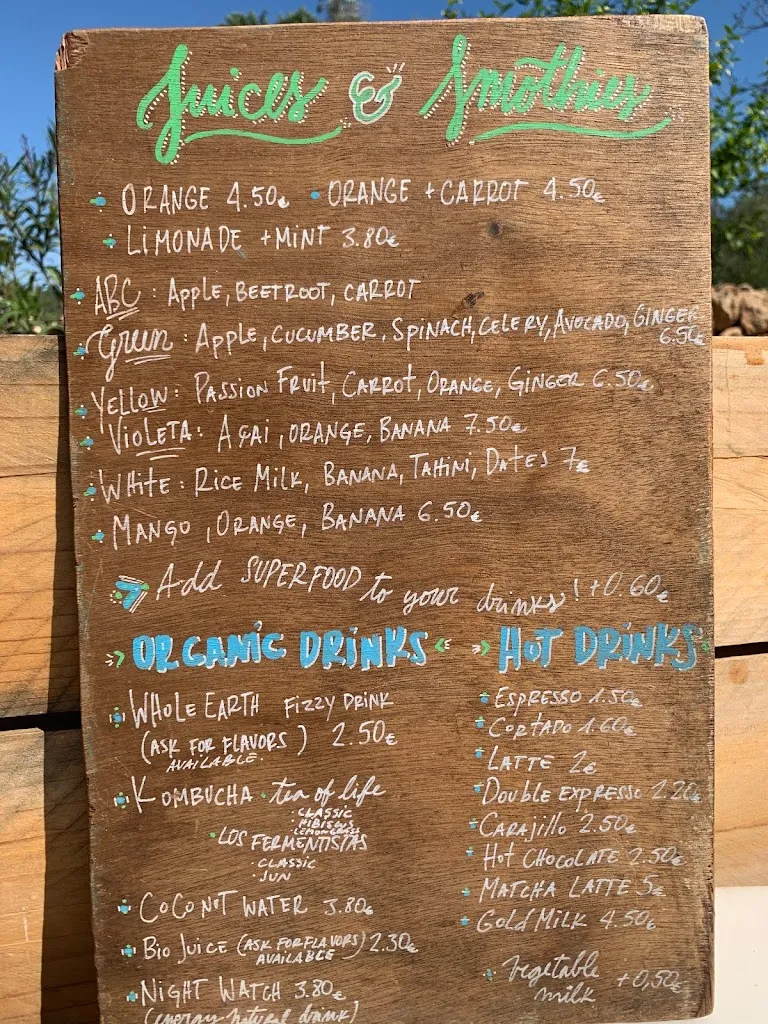 Juices & Smothies
ORANGE 4.50€ • ORANGE + CARROT 4.50€
LIMONADE + MINT 3.80€
ABC: APPLE, BEETROOT, CARROT
Green: APPLE, CUCUMBER, SPINACH, CELERY, AVOCADO, GINGER
6.50€
YELLOW: PASSION FRUIT, CARROT, ORANGE, GINGER 6.50€
VIOLETA: AÇAI, ORANGE, BANANA 7.50€
WHITE: RICE MILK, BANANA, TAHINI, DATES 7€
MANGO, ORANGE, BANANA 6.50€
Add SUPERFOOD to your drinks! +0.60€
ORGANIC DRINKS
WHOLE EARTH FIZZY DRINK
(ASK FOR FLAVORS) 2.50€
AVAILABLE.
KOMBUCHA • tea of life
• CLASSIC
• HIBISCUS
LEMONGRASS
• LOS FERMENTISTAS
• CLASSIC
• JUN
COCONUT WATER 3.80€
BIO JUICE (ASK FOR FLAVORS) 2.30€
AVAILABLE
NIGHT WATCH 3.80€
(energy natural drink)
HOT DRINKS
ESPRESSO 1.50€
CORTADO 1.60€
LATTE 2€
DOUBLE EXPRESSO 2.20€
CARAJILLO 2.50€
HOT CHOCOLATE 2.50€
MATCHA LATTE 5€
GOLD MILK 4.50€
Vegetable
milk +0,50€